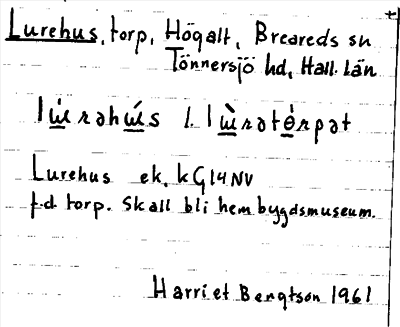 Lurehus, torp, Högalt, Breareds sn
Tönnersjö hd, Hall. Län
Lurehus ek. kG14NV
f.d torp. Skall bli hembygdsmuseum.
Harriet Bengtson 1961